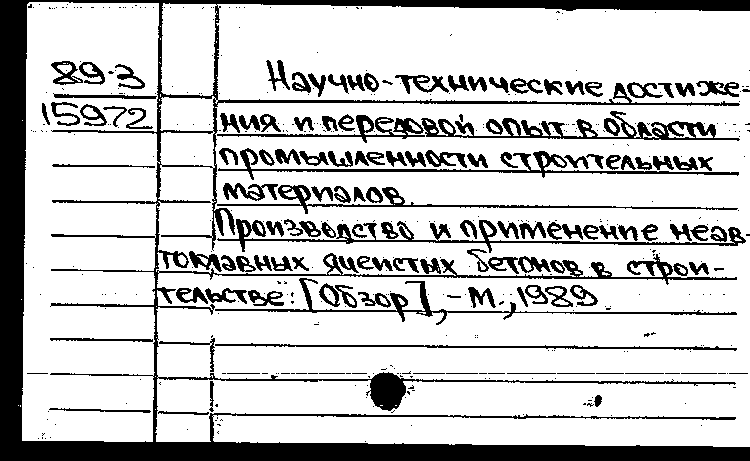 89-3 Научно-технические достиже-
15972 ния и передовой опыт в области
промышленности строительных
материалов.
Производство и применение неав-
токлавных ячеистых бетонов в строи-
тельстве: [Обзор], - М., 1989